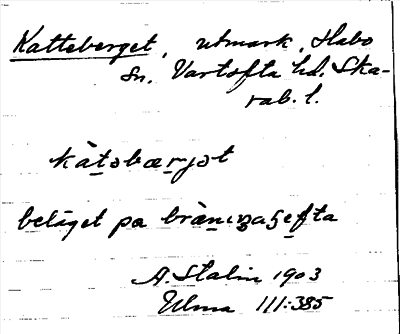 Katteberget, utmark, Habo
sn. Vartofta hd. Ska-
rab. l.
kàtəbærjət
beläget på
A. Stalin 1903
Ulma 111:385